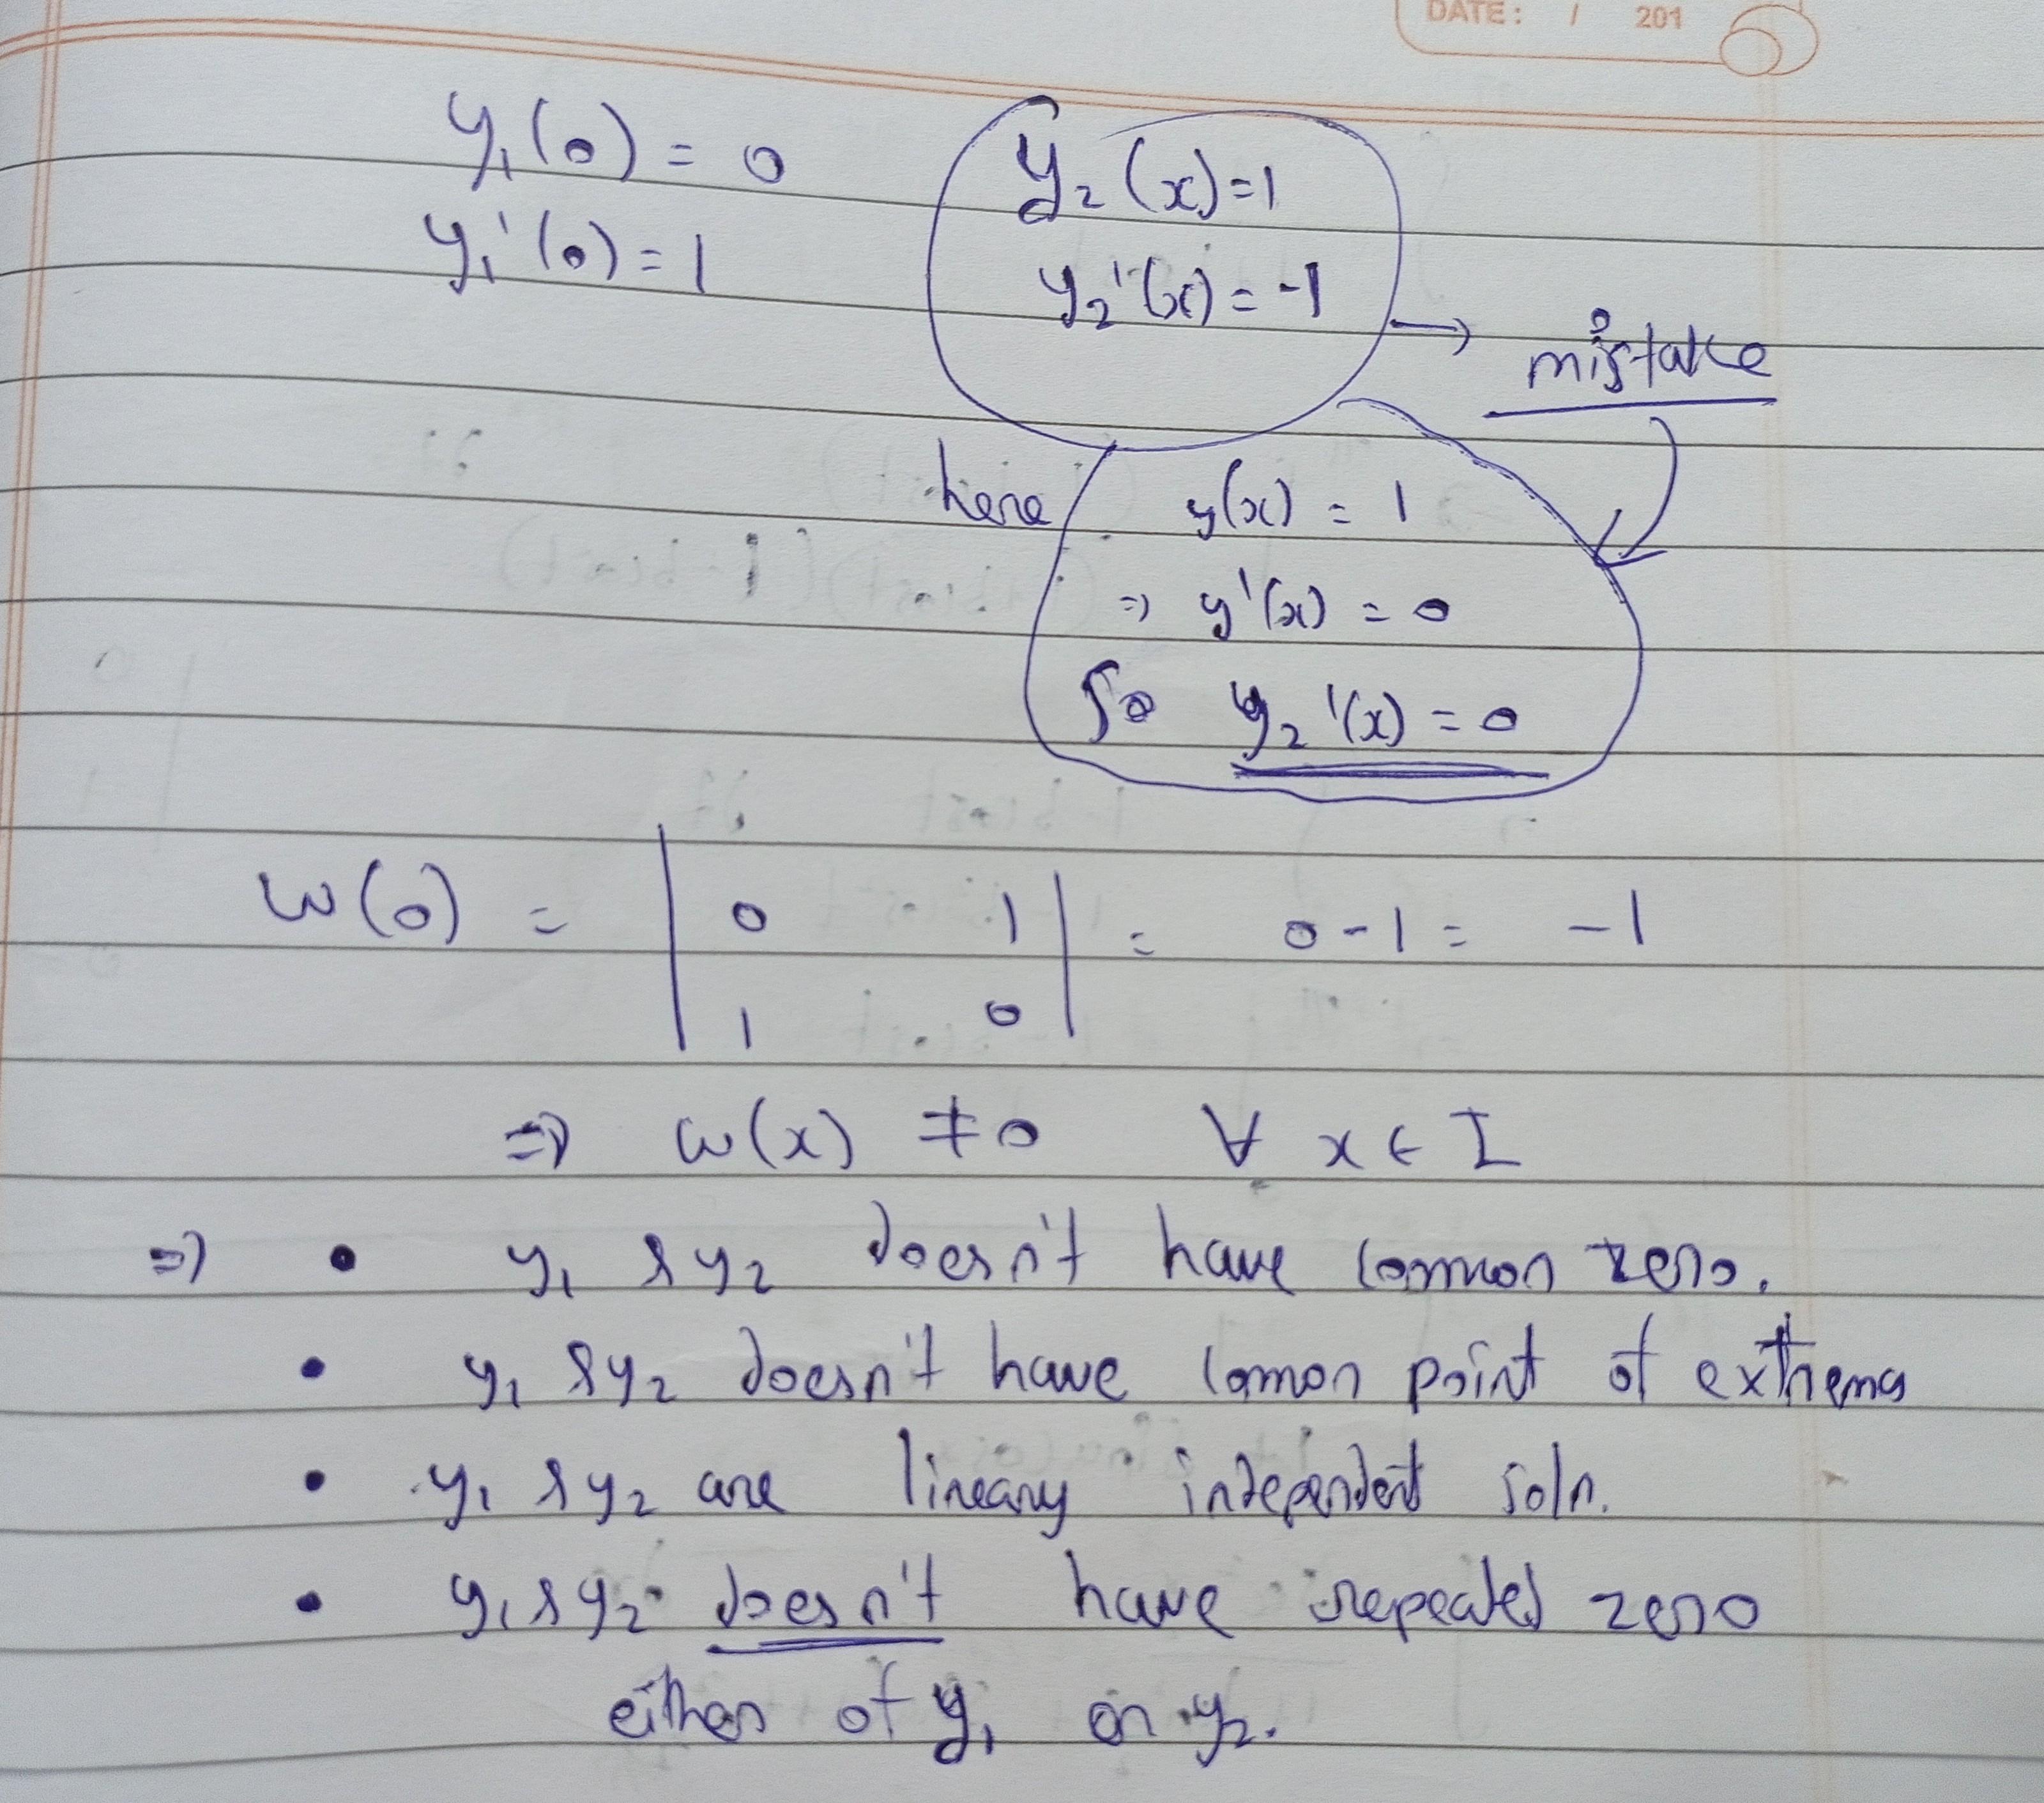 DATE: / 201
y₁(0) = 0
y₂(x)=1
y₁'(0)=1
y₂'(x)=-1
→ mistake
here y(x) = 1
⇒ y'(x) = 0
So y₂'(x) = 0
W(0) = | 0 1 | = 0-1 = -1
| 1 0 |
⇒ W(x) ≠ 0 ∀ x ∈ I
⇒ • y₁ & y₂ doesn't have common zero.
• y₁ & y₂ doesn't have comon point of extrema
• y₁ & y₂ are lineary independent soln.
• y₁ & y₂ doesn't have repeated zero
either of y₁ or y₂.